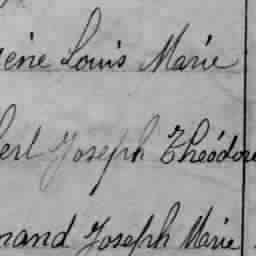 ène Louis Marie
bert Joseph Théodore
nand Joseph Marie